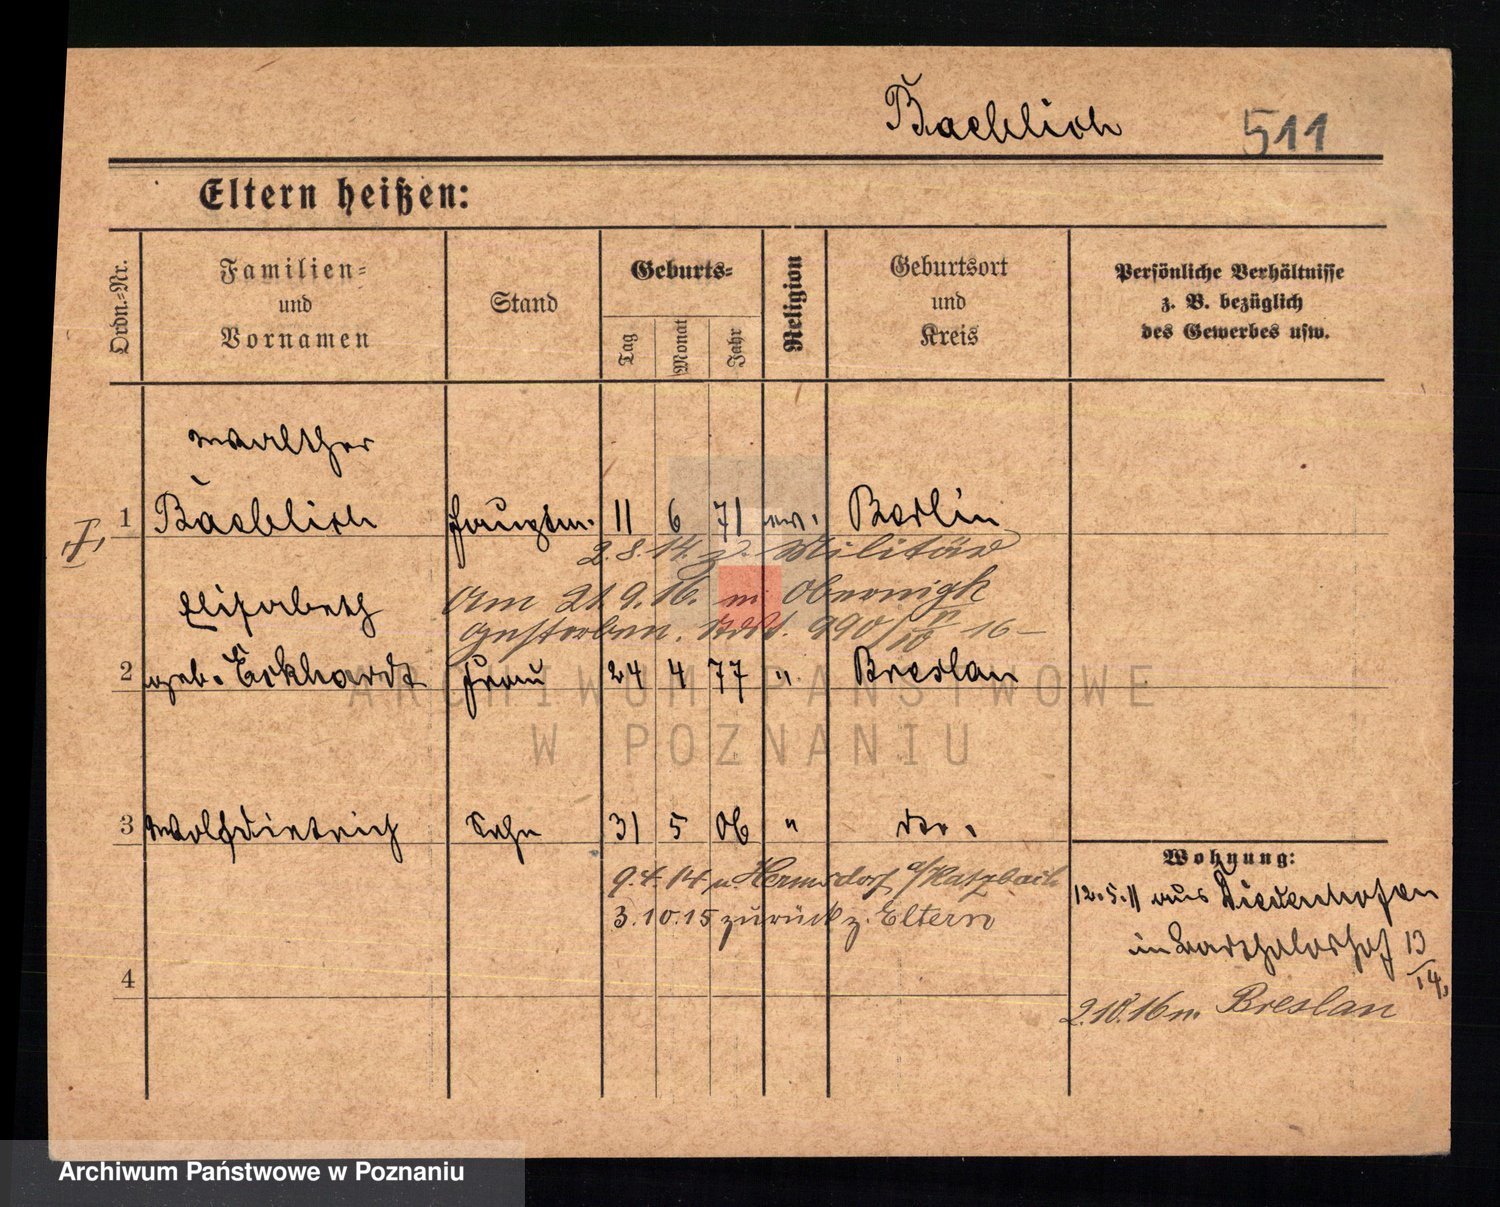 Bäeblich 511
Eltern heißen:
Ordn.-Nr.
Familien-
und
Vornamen
Stand
Geburts-
Tag
Monat
Jahr
Religion
Geburtsort
und
Kreis
Persönliche Verhältnisse
z. B. bezüglich
des Gewerbes usw.
Walther
1 Bäeblich Hauptm. 11 6 71 ev. Berlin
2.8.14. z. Militär
Elisabeth
Am 21.9.16. in Obernigk
gestorben.
2 geb. Eckhardt Frau 24 4 77 " Breslau
3 Wolfdietrich Sohn 31 5 06 " dto.
Wohnung:
9.4.14 n. Hermsdorf a/Katzbach
12.5.11 aus Diedenhofen
3.10.15 zurück z. Eltern
im 13/14,
4
2.10.16 n. Breslau
ARCHIWUM PAŃSTWOWE
W POZNANIU
Archiwum Państwowe w Poznaniu